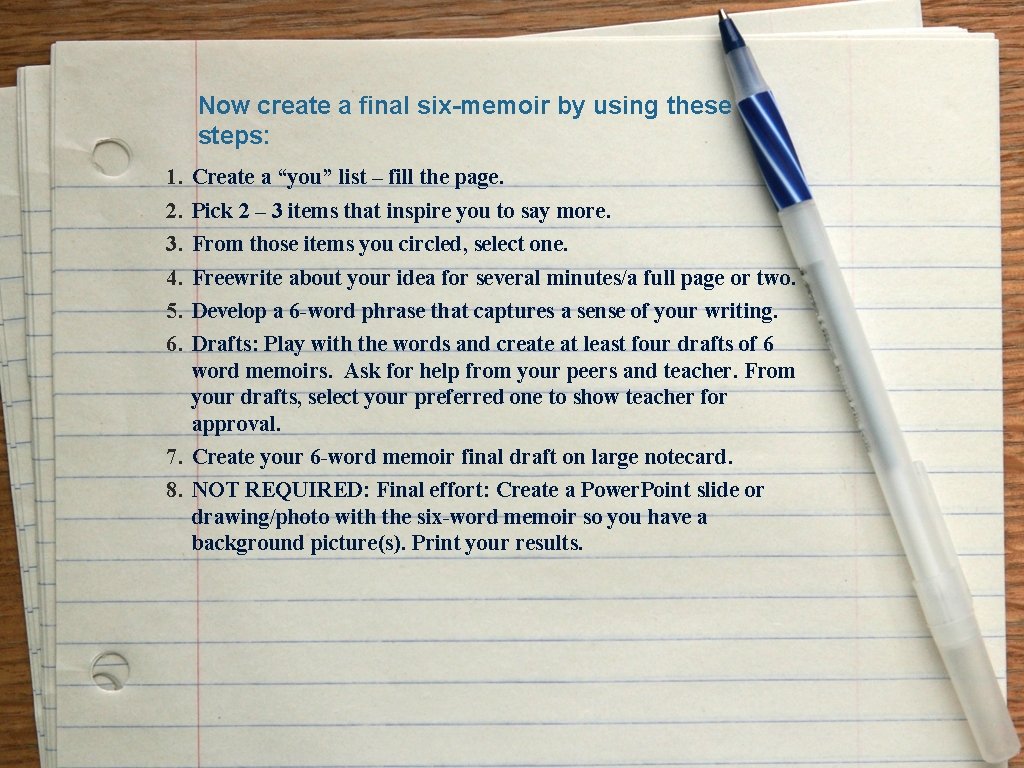 Now create a final six-memoir by using these
steps:
1. Create a “you” list – fill the page.
2. Pick 2 – 3 items that inspire you to say more.
3. From those items you circled, select one.
4. Freewrite about your idea for several minutes/a full page or two.
5. Develop a 6-word phrase that captures a sense of your writing.
6. Drafts: Play with the words and create at least four drafts of 6
word memoirs.  Ask for help from your peers and teacher. From
your drafts, select your preferred one to show teacher for
approval.
7. Create your 6-word memoir final draft on large notecard.
8. NOT REQUIRED: Final effort: Create a Power.Point slide or
drawing/photo with the six-word memoir so you have a
background picture(s). Print your results.